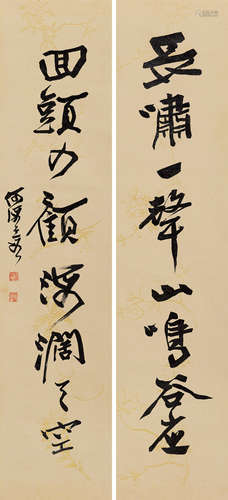 長嘯一聲山鳴谷应
回頭四顧海濶天空
何海霞